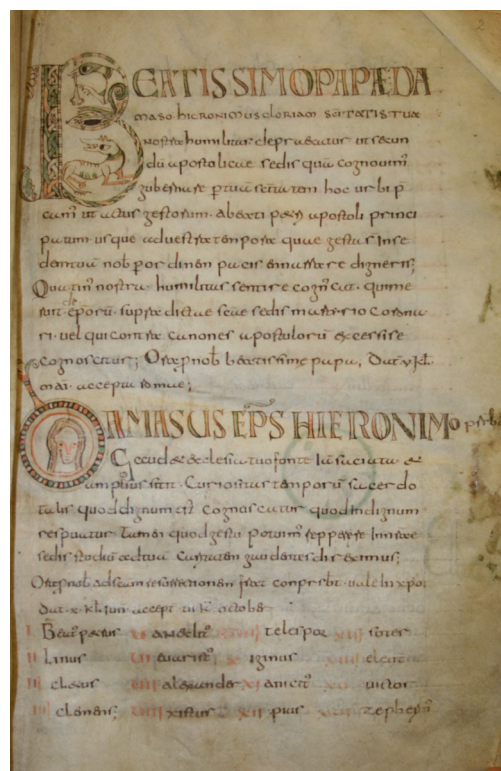 2
BEATISSIMO PAPAE DA
MASO HIERONIMUS Gloriam sc̄itatis tuae
nostrae humilitas deprecatur ut secun
dū apostolicae sedis quā cognouim̄
gubernare per tuā sc̄itatem hoc urbi p
cam̄ ut actus gestorum. a beati petri apostoli princi
patum usque ad uestra tempora quae gesta s̄ in se
de tua nob̄ per ordinem pacis enarrare digneris;
Quatin̄ nostra humilitas sentire cogn̄cat. qui me
ruit de ep̄orū supra dictae seue sedis martyrio corona
ri. uel qui contra canones apostolorū excessisse
cognoscatur; Ora p nob̄ beatissime papa, Dat v kl̄.
mai. accepta romae;
DAMASUS EP̄S HIERONIMO prb̄
Gaudet ecclesia tuo fonte iā saciata et
amplius sitit. Curiositas temporū sacerdo
talis quod dignum est cognoscatur quod indignum
respuatur. Tamen quod gesta potuim̄ repperire in nostrae
sedis studiū ad tuā caritatem gaudentes direximus;
Ora p nob̄ ad scam resurrectionem frater conpresb̄t. uale in xpo
dat x. kl. Iun accept vi kl̄ octob̄
I Beat̄ petrus VI alexander XI telespor XII soter
II Linus VII euarist̄ X iginus XIII eleut̄
III cletus VIII alexander XI anicit̄ XV uictor
IIII clemens; VIIII xistus XII pius zepherin̄